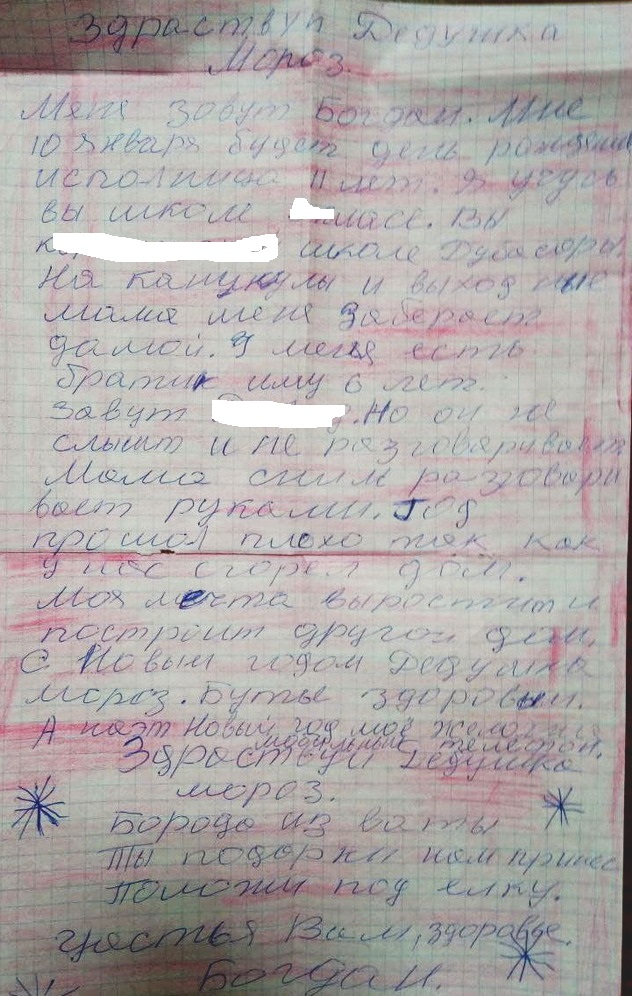 Здраствуй Дедушка
Мороз.
Меня зовут Богдан. Мне
10 января будет день рождения
исполница 11 лет. Я учусь
вы школе класе. Вы
школе Дубасары.
На каникулы и выходные
мама меня заберает
дамой. У меня есть
братик иму 6 лет.
Завут Но он не
слышт и не разговаривает
Мама сним разговари
вает руками. Год
прошол плохо так как
у нас сгорел дом.
Моя мечта вырости и
построит другой дом.
С Новым годом Дедушка
мороз. Буты здоровым.
А наэт Новый год моё
мобильный телефон.
Здраствуй Дедушка
мороз.
Борода из ваты
Ты подарки нам принес
Положи под елку.
Щастья Вам, здоровье.
Богдан.